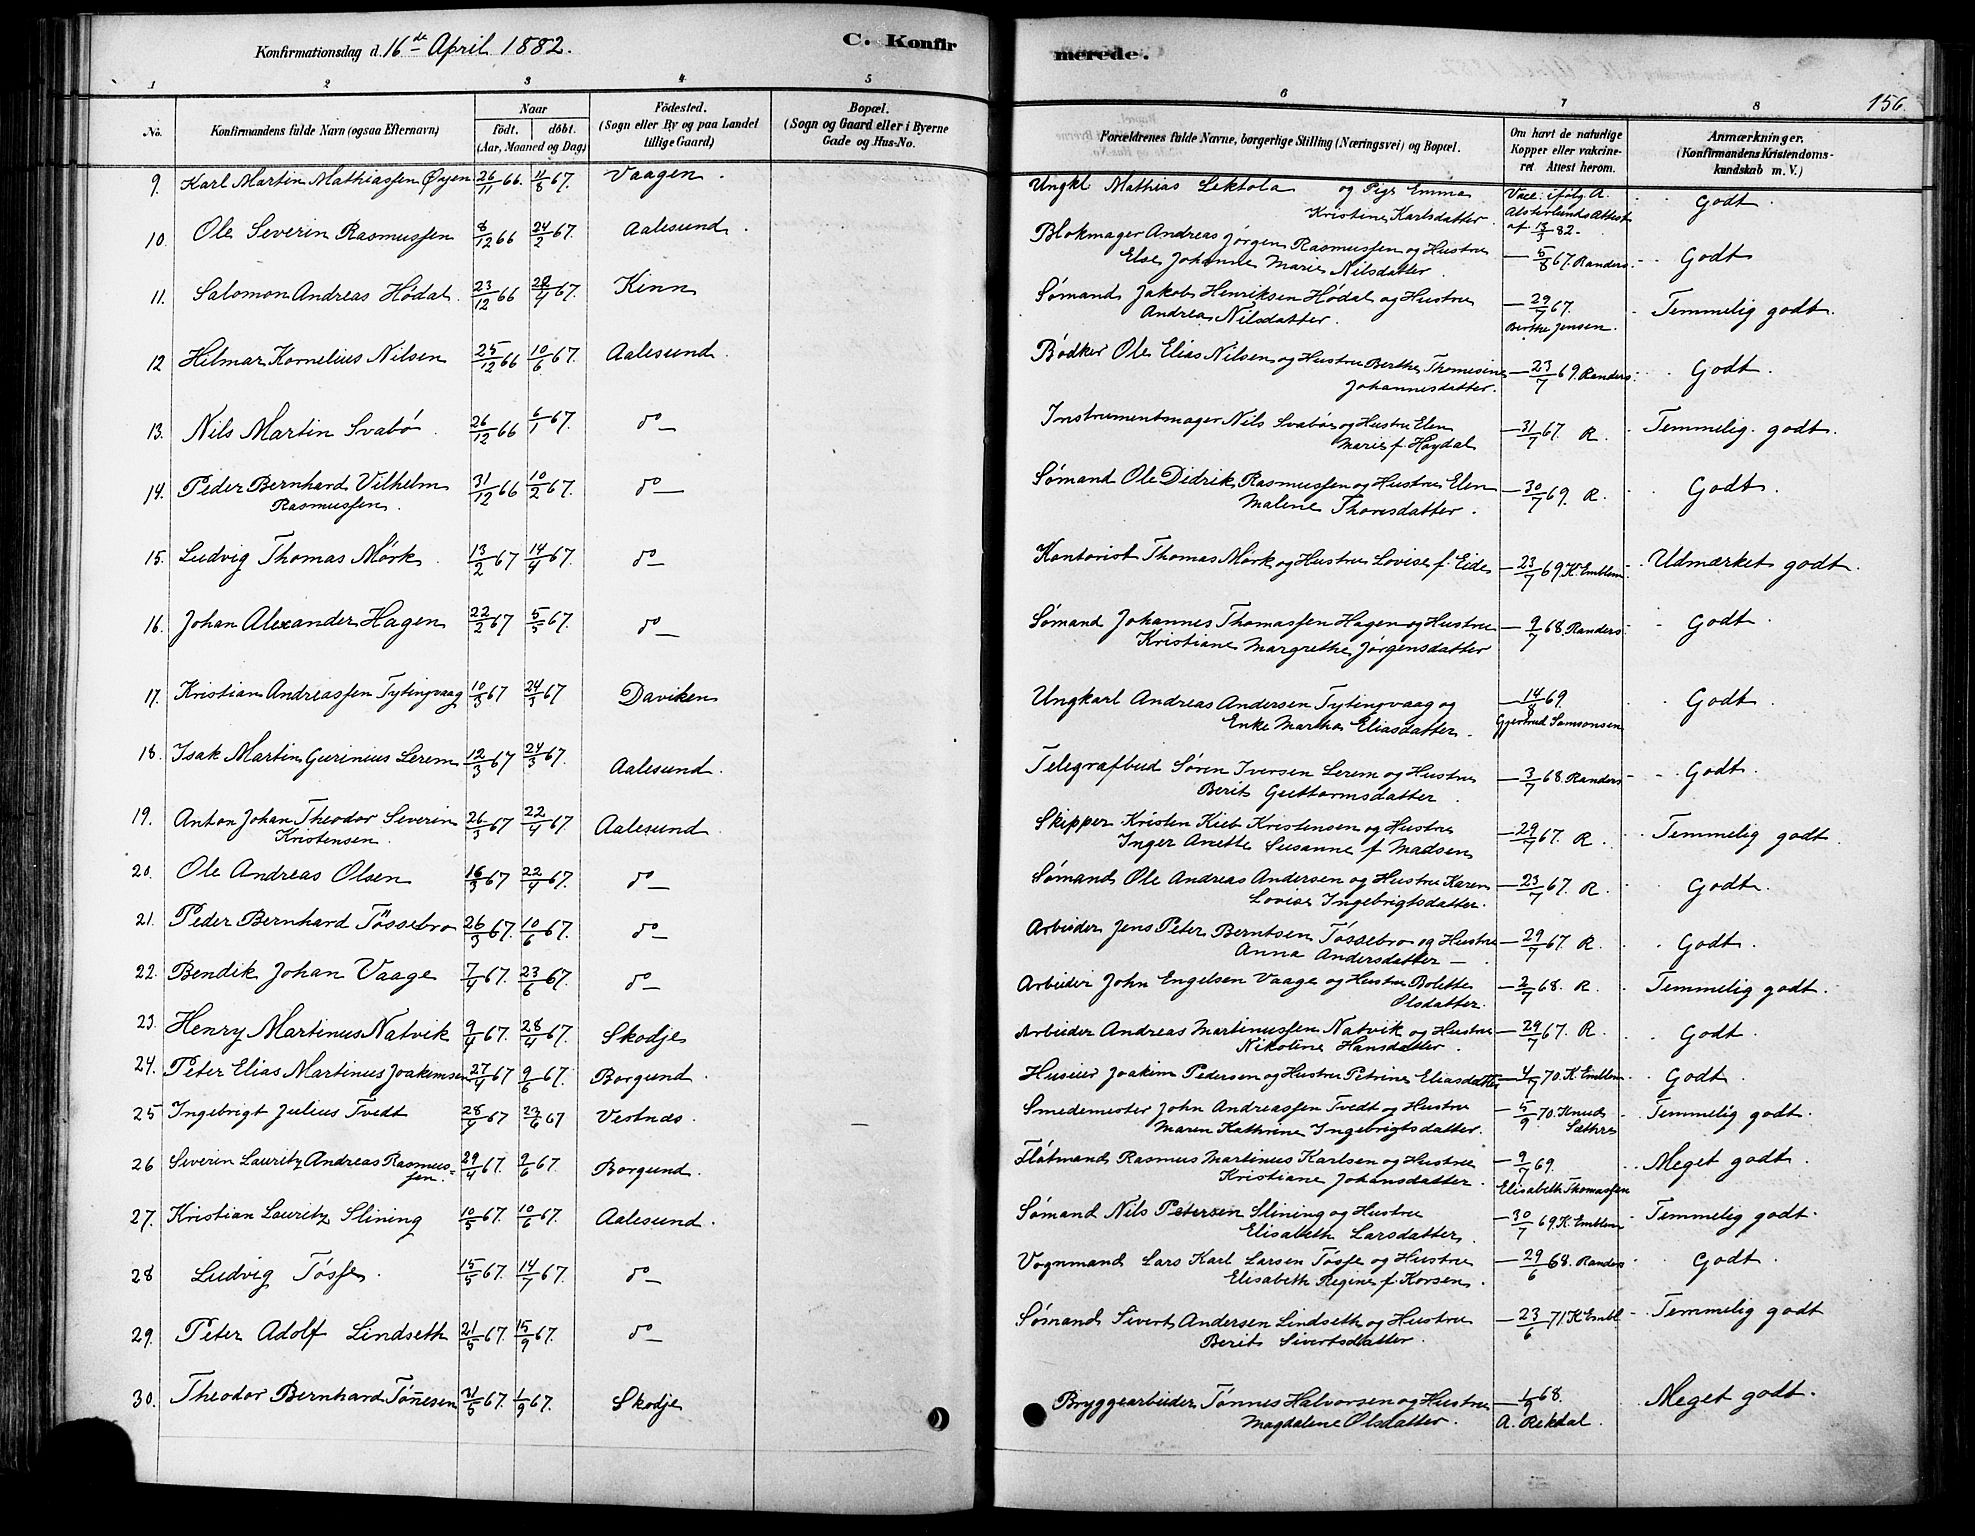 Konfirmationsdag d. 16de April 1882.
C. Konfir
merede.
156.
1 2 3 4 5 6 7 8
No.
Konfirmandens fulde Navn (ogsaa Efternavn)
Naar
födt. döbt.
(Aar, Maaned og Dag)
Födested.
(Sogn eller By og paa Landet
tillige Gaard)
Bopæl.
(Sogn og Gaard eller i Byerne
Gade og Hus-No.
Forældrenes fulde Navne, borgerlige Stilling (Næringsvei) og Bopæl.
Om havt de naturlige
Kopper eller vakcine-
ret Attest herom.
Anmærkninger.
(Konfirmandens Kristendoms-
kundskab m. V.)
9. Karl Martin Mathiassen Øyen 26/11 66. 67. Vaagen. Ungkl Mathias Lektola og Pige Emma Vacc. ifølg A. Godt.
Kristine Karlsdatter. Attest
af 82.
10. Ole Severin Rasmussen 8/12 66 24/2 67. Aalesund. Blokmager Andreas Jørgen Rasmussen og Hustru — 5/8 67. Randers. Godt
Else Johanne Marie Nilsdatter.
11. Salomon Andreas Hødal. 23/12 66 67. Kinn Sømand Jakob Henriksen Hødal og Hustru — 29/7 67. Temmelig godt.
Andrea Nilsdatter. Berthe Jensen.
12 Hilmar Kornelius Nilsen 25/12 66 10/6 67. Aalesund. Bødker Ole Elias Nilsen og Hustru Berthe Thomesine — 23/7 69. Randers. Godt.
Johannesdatter.
13. Nils Martin Svabø. 26/12 66 6/1 67. do — Instrumentmager Nils Svabø og Hustru Elen — 31/7 67. R. Temmelig godt.
Marie f. Høydal
14. Peder Bernhard Vilhelm 31/12 66 10/2 67. do — Sømand Ole Didrik Rasmussen og Hustru Elen — 30/7 69. R. Godt.
Rasmussen. Malene Thoresdatter.
15. Ludvig Thomas Mørk. 13/2 67 14/4 67. do — Kontorist Thomas Mørk og Hustru Lovise f. Eide — 23/7 69 K. Emblem. Udmærket godt.
16. Johan Alexander Hagen 22/2 67 5/5 67. do — Sømand Johannes Thomassen Hagen og Hustru — 9/7 68. Randers. Godt.
Kristiane Margrethe Jørgensdatter
17. Kristian Andreassen Tytingvaag 10/3 67 24/3 67 Daviken Ungkarl Andreas Andersen Tytingvaag og — 14/8 69. Godt.
Enke Martha Eliasdatter. Gjertrud Samsonsen
18. Isak Martin Guerinius Lerem 12/3 67 24/3 67. Aalesund. Telegrafbud Søren Iversen Lerem og Hustru — 3/7 68. Randers — Godt.
Berit Guttormsdatter.
19. Anton Johan Theodor Severin 26/3 67 22/4 67. Aalesund. Skipper Kristen Kieb Kristensen og Hustru — 29/7 67. R. Temmelig godt.
Kristensen. Inger Anette Susanne f. Madsen
20. Ole Andreas Olsen 16/3 67 22/4 67. do — Sømand Ole Andreas Andersen og Hustru Karen — 23/7 67. R. Godt.
Lovise Ingebrigtsdatter.
21. Peder Bernhard Tøssebro 26/3 67. 10/6 67. do — Arbeider Jens Peter Berntsen Tøssebro og Hustru — 29/7 67. R. Godt.
Anna Andersdatter —
22. Bendik Johan Vaage 7/4 67. 23/6 67. do — Arbeider John Engelsen Vaage og Hustru Bolette — 2/7 68. R. Temmelig godt.
Olsdatter.
23. Henry Martinus Natvik 9/4 67. 28/4 67. Skodje Arbeider Andreas Martinussen Natvik og Hustru — 29/7 67. R. Godt
Nikoline Hansdatter.
24. Peter Elias Martinus Joakimsen 27/4 67 9/6 67. Borgund. Huseier Joakim Pedersen og Hustru Petrine Eliasdatter — 70. K. Emblem. Godt.
25 Ingebrigt Julius Tvedt 28/4 67 23/6 67 Vestnæs. Smedemester John Andreassen Tvedt og Hustru — 5/9 70. Knud Temmelig godt.
Maren Kathrine Ingebrigtsdatter. Sæthre
26 Severin Lauritz Andreas Rasmus- 29/4 67. 9/6 67. Borgund. Fløtmand Rasmus Martinus Karlsen og Hustru — 9/7 69. Meget godt.
sen. Kristiane Johansdatter. Elisabeth Thomassen
27. Kristian Lauritz Slining 10/5 67. 10/6 67. Aalesund. Sømand Nils Petersen Slining og Hustru — 30/7 69 K. Emblem Temmelig godt.
Elisabeth Larsdatter.
28 Ludvig Tøsse. 15/5 67. 14/7 67. do — Vognmand Lars Karl Larsen Tøsse og Hustru — 29/6 68. Randers Godt.
Elisabeth Regine f. Korsen.
29. Peter Adolf Lindseth 21/5 67. 15/9 67. do — Sømand Sivert Andersen Lindseth og Hustru — 23/6 71 K Embl. Temmelig godt
Berit Sivertsdatter.
30. Theodor Bernhard Tønnesen 21/5 67. 1/9 67. Skodje Bryggearbeider Tønnes Halvorsen og Hustru — 68. Meget godt.
Magdalene Olsdatter. A. Rekdal.